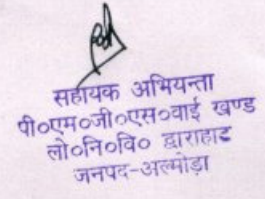 सहायक अभियन्ता
पी०एम०जी०एस०वाई खण्ड
लो०नि०वि० द्वाराहाट
जनपद-अल्मोड़ा